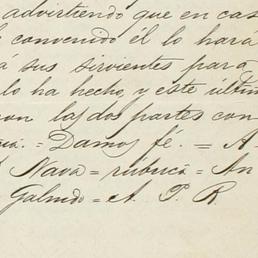 advirtiendo que en cas
convenido él lo hará
á sus sirvientes para
lo ha hecho, y este últim
con las dos partes con
= Damos fé. = A
Nava = rúbrica = An
Galindo = A. P. R